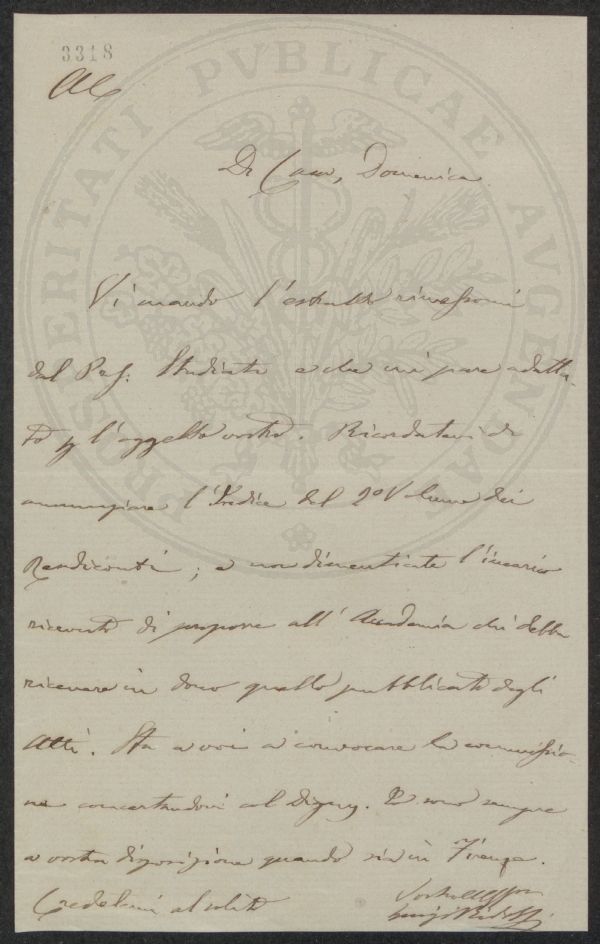 3318
Di Casa, Domenica
Vi mando l'estratto rimessomi
dal Prof: Studiati e che mi pare adatta-
to p l'oggetto vostro. Ricordatevi di
annunziare l'Indice del 2º Volume dei
Rendiconti; e non dimenticate l'incarico
ricevuto di proporre all'Accademia chi debba
ricevere in dono quello pubblicato degli
Atti. Sta a voi a convocare la commissio-
ne concertandovi col Digny. Io sono sempre
a vostra disposizione quando sia in Firenze.
Credetemi al solito
Luigi Ridolfi
PROSPERITATI PVBLICAE AVGENDAE